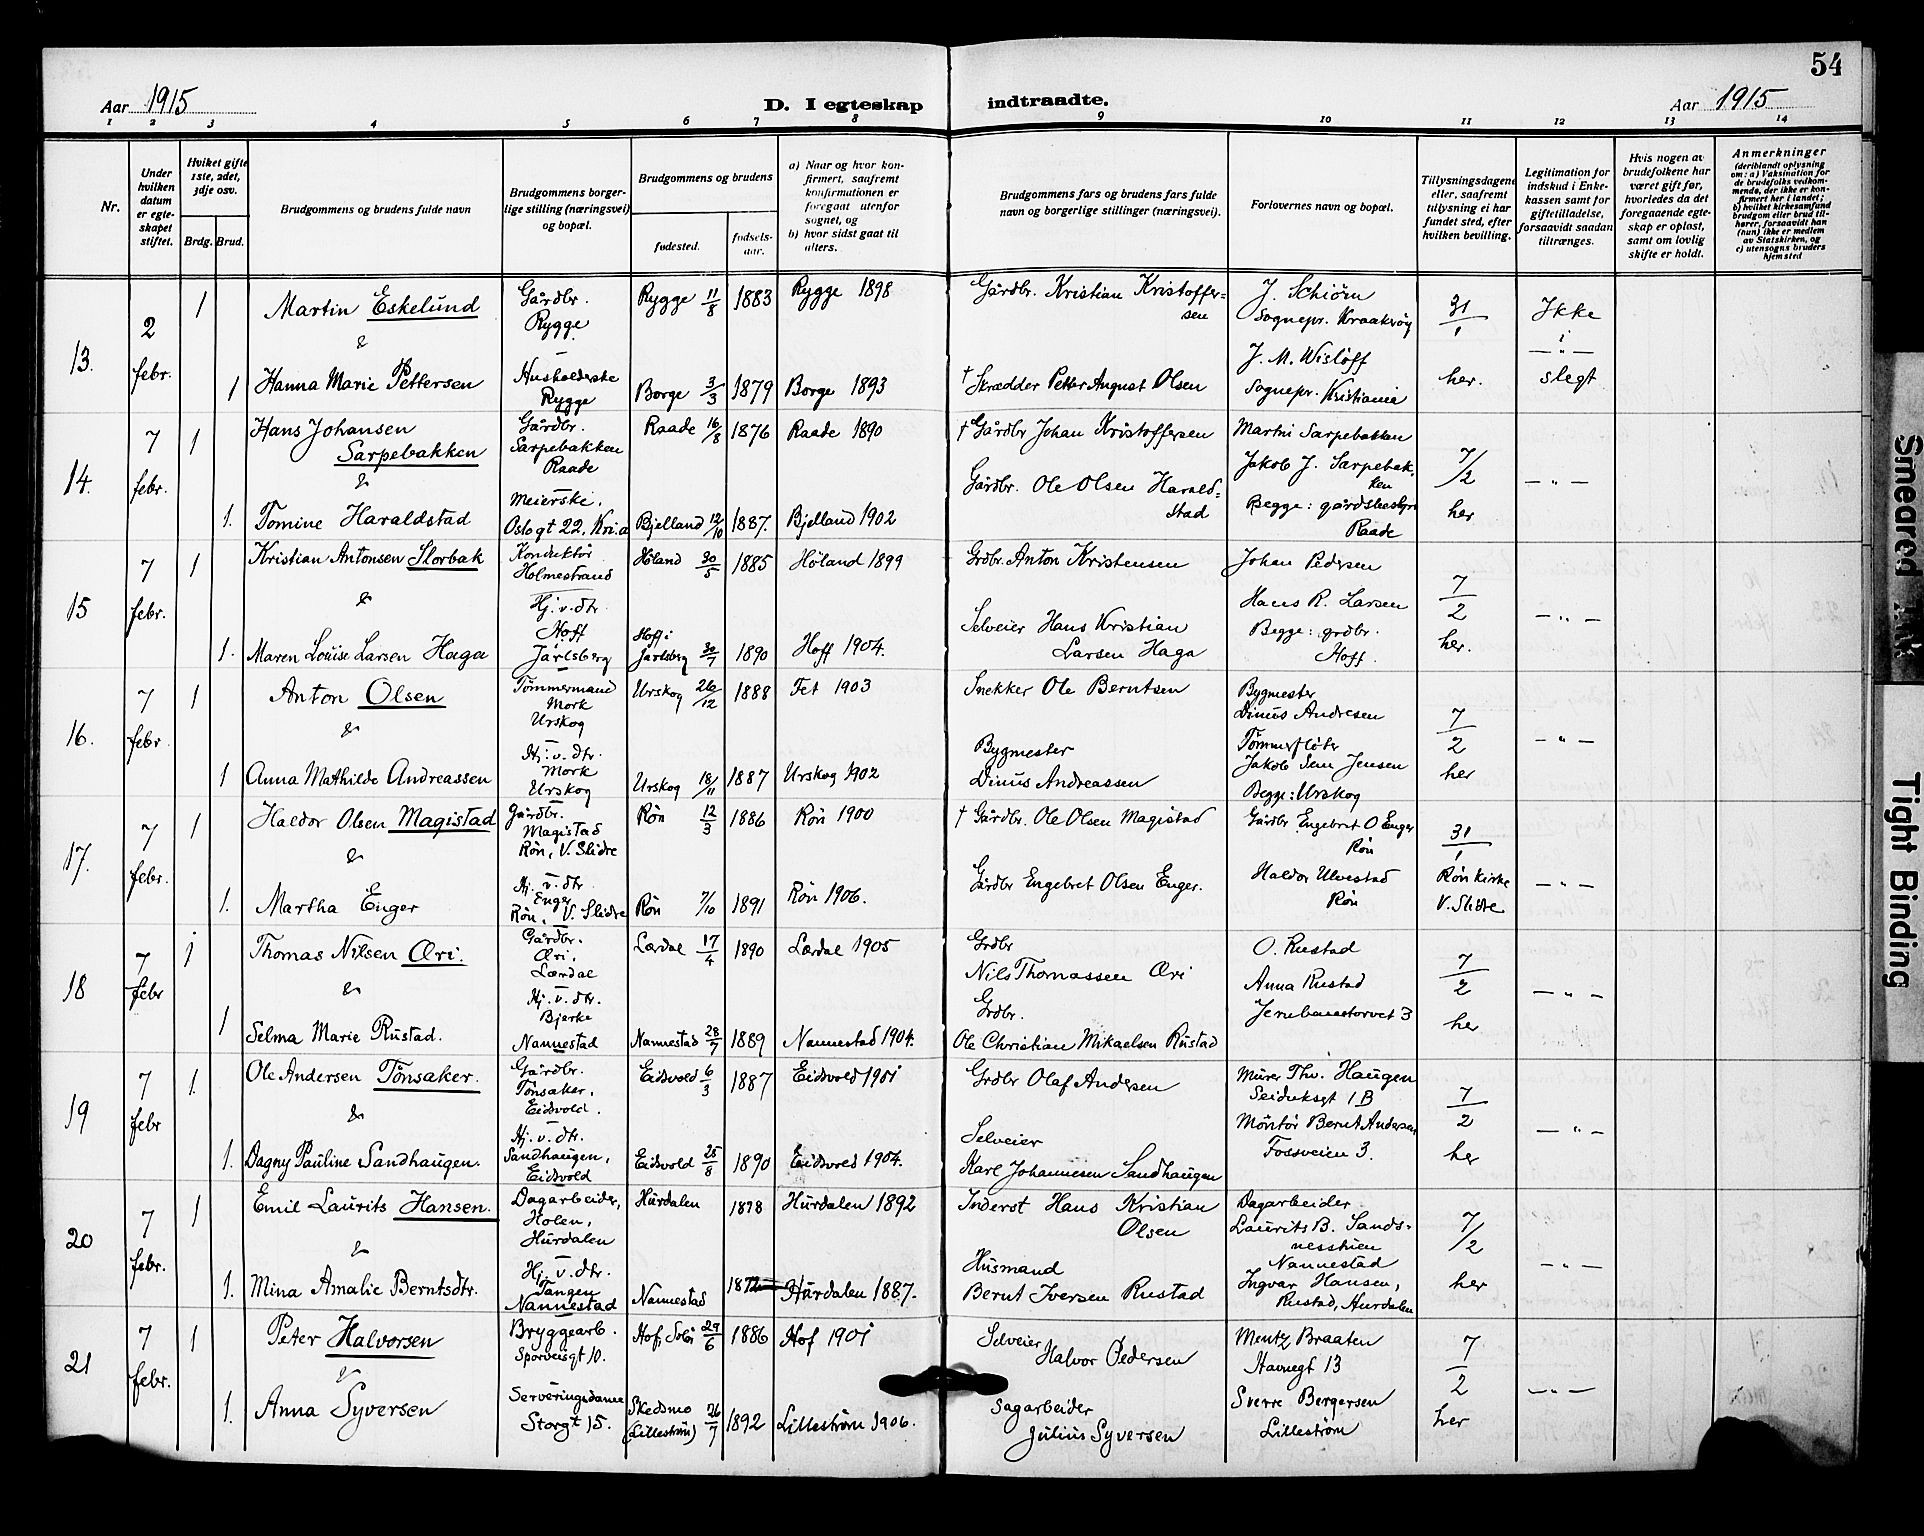 54
Aar 1915
D. I egteskap indtraadte.
Aar 1915
1 2 3 4 5 6 7 8 9 10 11 12 13 14
Nr.
Under hvilken datum er egteskapet stiftet.
Hvilket gifte 1ste, 2det, 3dje osv.
Brdg. Brud.
Brudgommens og brudens fulde navn
Brudgommens borgerlige stilling (næringsvei) og bopæl.
Brudgommens og brudens
fødested.
fødselsaar.
a) Naar og hvor konfirmert, saafremt konfirmationen er foregaat utenfor sognet, og
b) hvor sidst gaat til alters.
Brudgommens fars og brudens fars fulde navn og borgerlige stillinger (næringsvei).
Forlovernes navn og bopæl.
Tillysningsdagene eller, saafremt tillysning ei har fundet sted, efter hvilken bevilling.
Legitimation for indskud i Enkekassen samt for giftetilladelse, forsaavidt saadan tiltrænges.
Hvis nogen av brudefolkene har været gift før, hvorledes da det foregaaende egteskap er opløst, samt om lovlig skifte er holdt.
Anmerkninger
(deriblandt oplysning om: a) Vaksination for de brudefolks vedkommende, der ikke er konfirmert her i landet; b) hvilket kirkesamfund brudgom eller brud tilhører, forsaavidt han (hun) ikke er medlem av Statskirken, og c) utensogns bruders hjemsted
13. 2 febr. 1
Martin Eskelund
Gårdbr. Rygge
Rygge 11/8 1883
Rygge 1898
Gårdbr. Kristian Kristoffersen
J. Schiörn
Sognepr. Kraakröy
31/1 her.
Ikke i slegt
&
1 Hanna Marie Pettersen
Husholderske Rygge
Borge 3/3 1879
Borge 1893
† Skrædder Petter August Olsen
J. M. Wislöff
Sognepr. Kristiania
14. 7 febr. 1
Hans Johansen Sarpebakken
Gårdbr. Sarpebakken Raade
Raade 16/8 1876
Raade 1890
† Gårdbr Johan Kristoffersen
Martin Sarpebakken
Jakob J. Sarpebakken
7/2 her
— " —
&
1. Tomine Haraldstad
Meierske. Oslogt 22, Kr.a
Bjelland 12/10 1887.
Bjelland 1902
Gårdbr. Ole Olsen Haraldstad
Begge: gårdbestyr Raade
15 7 febr. 1
Kristian Antonsen Slorbak
Konduktör Holmestrand
Höland 30/5 1885
Höland 1899
Grdbr. Anton Kristensen
Johan Pedersen
Hans R. Larsen
7/2 her.
— " —
&
1. Maren Louise Larsen Haga
Hj. v. dtr Hoff Jarlsberg
Hoff i Jarlsberg 30/7 1890
Hoff 1904.
Selveier Hans Kristian Larsen Haga
Begge: grdbr. Hoff.
16. 7 febr. 1
Anton Olsen
Tömmermand Mork Urskog
Urskog 26/12 1888
Fet 1903
Snekker Ole Berntsen
Bygmester Dinus Andresen
7/2 her
— " —
&
1 Anna Mathilde Andreassen
Hj. v. dtr. Mork Urskog
Urskog 18/11 1887
Urskog 1902
Bygmester Dinus Andreassen
Tömmerfløter Jakob Sem Jensen
Begge: Urskog
17. 7 febr. 1
Haldor Olsen Magistad
Gårdbr. Magistad Røn, V. Slidre
Røn 12/3 1886
Røn 1900
† Gårdbr. Ole Olsen Magistad
Gårdbr Engebret O Enger Røn
31/1 Røn kirke V. Slidre
— " —
&
1. Martha Enger
Hj. v. dtr Enger Røn, V. Slidre
Røn 7/10 1891
Røn 1906.
Gårdbr Engebret Olsen Enger.
Haldor Ulvestad Røn
18 7 febr 1
Thomas Nilsen Øri.
Gårdbr. Øri, Lærdal
Lærdal 17/4 1890
Lærdal 1905
Grdbr Nils Thomassen Øri
O. Rustad
7/2 her
— " —
&
1 Selma Marie Rustad.
Hj. v. dtr. Bjerke Nannestad
Nannestad 28/7 1889
Nannestad 1904.
Grdbr. Ole Christian Mikaelsen Rustad
Anna Rustad
Jernbanetorvet 3
19 7 febr 1.
Ole Andersen Tönsaker.
Gårdbr. Tönsaker, Eidsvold.
Eidsvold 6/3 1887
Eidsvold 1901
Grdbr Olaf Andersen
Murer Thv. Haugen
Seiduksgt 1B
7/2 her
— " —
&
1. Dagny Pauline Sandhaugen.
Hj. v. dtr. Sandhaugen, Eidsvold
Eidsvold 25/8 1890
Eidsvold 1904.
Selveier Karl Johannesen Sandhaugen
Montör Bernt Andersen
Fossveien 3.
20 7 febr. 1
Emil Laurits Hansen.
Dagarbeider, Holen, Hurdalen
Hurdalen 1878
Hurdalen 1892
Inderst Hans Kristian Olsen
Dagarbeider Laurits B. Sandsnesstuen Nannestad
7/2 her
— " —
&
1. Mina Amalie Berntsdtr.
Hj. v. dtr. Tangen Nannestad
Nannestad 1872
Hurdalen 1887.
Husmand Bernt Iversen Rustad
Ingvar Hansen, Rustad, Hurdalen
21 7 febr. 1
Peter Halvorsen
Bryggearb. Sporveisgt 10.
Hof, Solör 29/6 1886
Hof 1901
Selveier Halvor Pedersen
Mentz Braaten
Havnegt 13
7/2 her
— " —
&
1. Anna Syversen
Serveringsdame Storgt 15.
Skedsmo (Lilleström) 26/7 1892
Lilleström 1906.
Sagarbeider Julius Syversen
Sverre Bergersen
Lilleström
Smeared Ink
Tight Binding